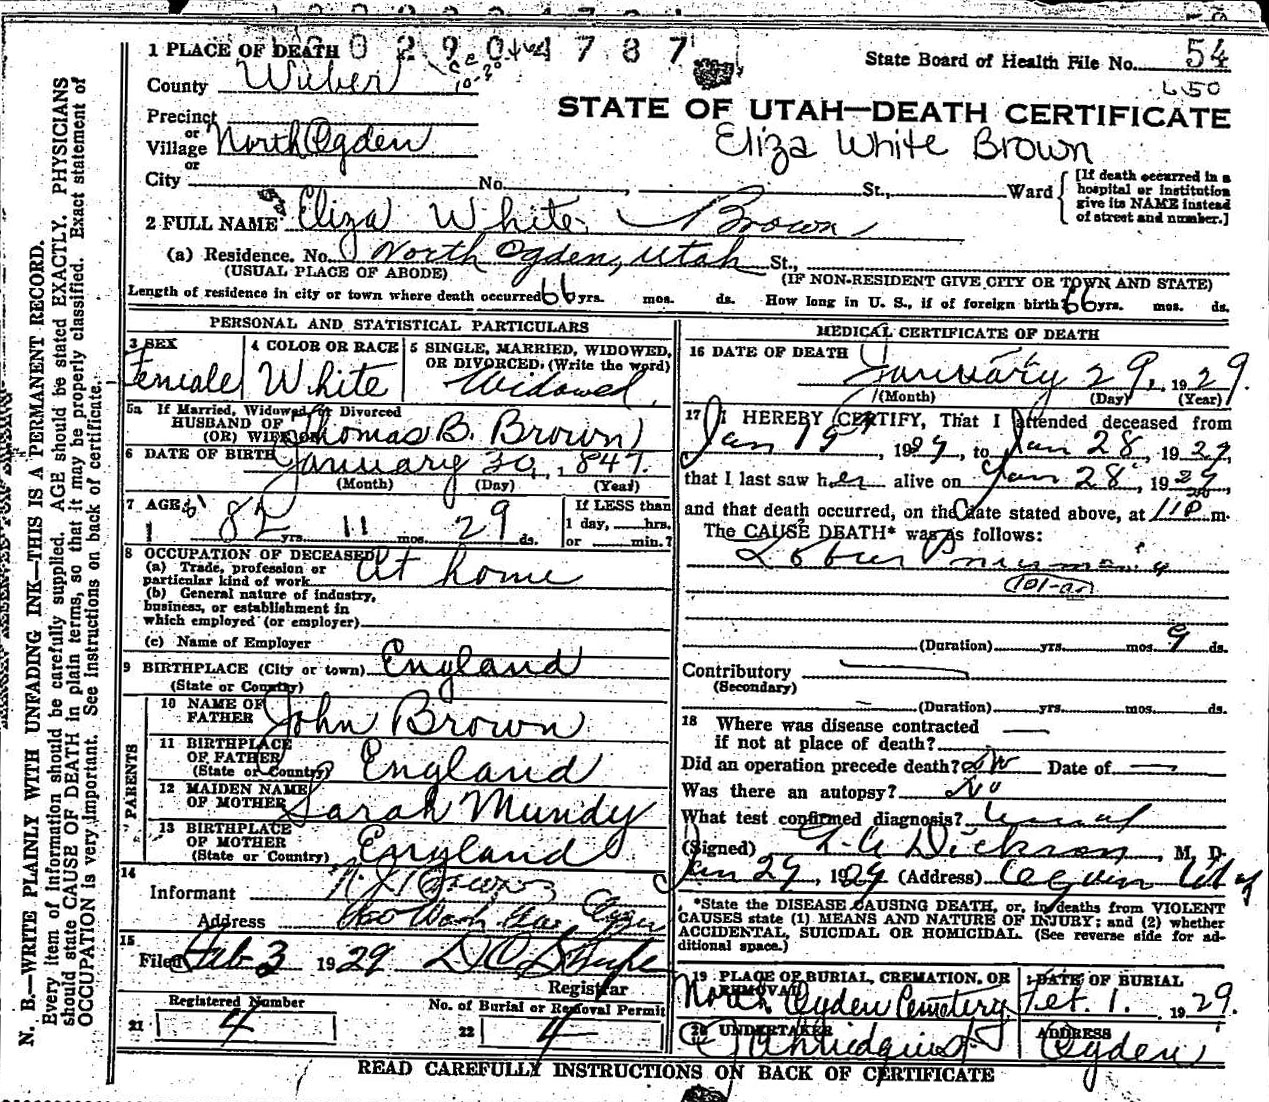 1 PLACE OF DEATH
029 04787
State Board of Health File No. 54
County Weber
STATE OF UTAH—DEATH CERTIFICATE
Precinct
or
Village North Ogden
Eliza White Brown
or
City No. St., Ward
[If death occurred in a
hospital or institution
give its NAME instead
of street and number.]
2 FULL NAME Eliza White Brown
(a) Residence. No. North Ogden, Utah St.,
(USUAL PLACE OF ABODE) (IF NON-RESIDENT GIVE CITY OR TOWN AND STATE)
Length of residence in city or town where death occurred 66 yrs. mos. ds. How long in U. S., if of foreign birth? 66 yrs. mos. ds.
PERSONAL AND STATISTICAL PARTICULARS
3 SEX 4 COLOR OR RACE 5 SINGLE, MARRIED, WIDOWED,
OR DIVORCED, (Write the word)
Female White Widowed
5a If Married, Widowed or Divorced
HUSBAND OF
(OR) WIFE OF Thomas B. Brown
6 DATE OF BIRTH January 30, 1847.
(Month) (Day) (Year)
7 AGE 82 yrs. 11 mos. 29 ds.
If LESS than
1 day, hrs.
or min.?
8 OCCUPATION OF DECEASED
(a) Trade, profession or
particular kind of work At home
(b) General nature of industry,
business, or establishment in
which employed (or employer)
(c) Name of Employer
9 BIRTHPLACE (City or town) England
(State or Country)
PARENTS
10 NAME OF
FATHER John Brown
11 BIRTHPLACE
OF FATHER
(State or Country) England
12 MAIDEN NAME
OF MOTHER Sarah Mundy
13 BIRTHPLACE
OF MOTHER
(State or Country) England
14
Informant Brown
Address Wash Ave Ogden
15
Filed Feb 3 1929
Registrar
Registered Number No. of Burial or Removal Permit
21 4 22 4
MEDICAL CERTIFICATE OF DEATH
16 DATE OF DEATH January 29, 1929.
(Month) (Day) (Year)
17 I HEREBY CERTIFY, That I attended deceased from
Jan 19, 1929, to Jan 28, 1929,
that I last saw her alive on Jan 28, 1929,
and that death occurred, on the date stated above, at m.
The CAUSE DEATH* was as follows:
Lobar Pneumonia
(Duration) yrs. mos. 9 ds.
Contributory
(Secondary)
(Duration) yrs. mos. ds.
18 Where was disease contracted
if not at place of death?
Did an operation precede death? no Date of
Was there an autopsy? No
What test confirmed diagnosis? usual
(Signed) Dickson, M. D.
Jan 29, 1929 (Address) Ogden Utah
*State the DISEASE CAUSING DEATH, or, in deaths from VIOLENT
CAUSES state (1) MEANS AND NATURE OF INJURY; and (2) whether
ACCIDENTAL, SUICIDAL OR HOMICIDAL. (See reverse side for ad-
ditional space.)
19 PLACE OF BURIAL, CREMATION, OR
REMOVAL DATE OF BURIAL
North Ogden Cemetery Feb. 1. 1929.
20 UNDERTAKER ADDRESS
Ogden
READ CAREFULLY INSTRUCTIONS ON BACK OF CERTIFICATE
N. B.—WRITE PLAINLY WITH UNFADING INK—THIS IS A PERMANENT RECORD.
Every item of information should be carefully supplied. AGE should be stated EXACTLY. PHYSICIANS
should state CAUSE OF DEATH in plain terms, so that it may be properly classified. Exact statement of
OCCUPATION is very important. See instructions on back of certificate.